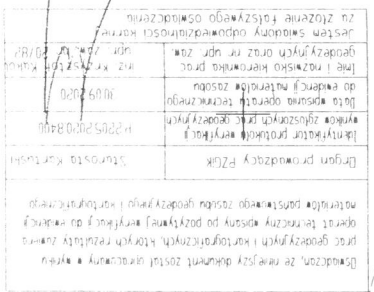 Oświadczam, że niniejszy dokument został opracowany w wyniku
prac geodezyjnych i kartograficznych, których rezultaty zawiera
operat techniczny wpisany po pozytywnej weryfikacji do ewidencji
materiałów państwowego zasobu geodezyjnego i kartograficznego
Organ prowadzący PZGiK
Starosta Kartuski
Identyfikator protokołu weryfikacji
wyników zgłoszonych prac geodezyjnych
P.2205.2020.8400
Data wpisania operatu technicznego
do ewidencji materiałów zasobu
30.09.2020
Imię i nazwisko kierownika prac
geodezyjnych oraz nr upr. zaw.
inż. Krzysztof
upr. zaw. nr
Jestem świadomy odpowiedzialności karnej
za złożenie fałszywego oświadczenia